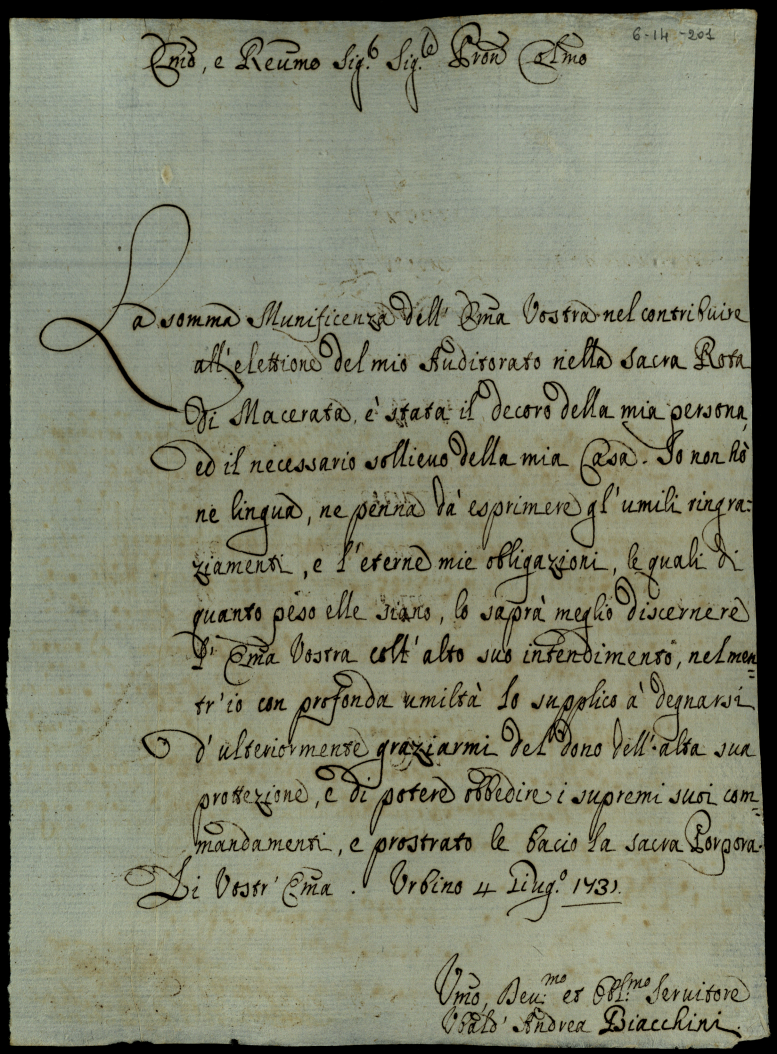 6-14-201
Emo, e Reumo Sig.r Sig.re Pron Colmo
La somma Munificenza dell' Ema Vostra nel contribuire
all' elettione del mio Auditorato nella sacra Rota
di Macerata, è stata il decoro della mia persona,
ed il necessario sollieuo della mia Casa. Io non hò
ne lingua, ne penna dà esprimere gl' umili ringra:
ziamenti, e l' eterne mie obligazioni, le quali di
quanto peso elle siano, lo saprà meglio discernere
l' Ema Vostra coll' alto suo intendimento, nel men=
tr' io con profonda umiltà lo supplico à degnarsi
d' ulteriormente graziarmi del dono dell' alta sua
protezione, e di potere obbedire i supremi suoi com=
mandamenti, e prostrato le bacio la sacra Porpora.
Di Vostr' Ema. Urbino 4 Giug.o 1731.
Vmo, Deu:mo et Obl:mo Seruitore
Vbald' Andrea Biacchini.